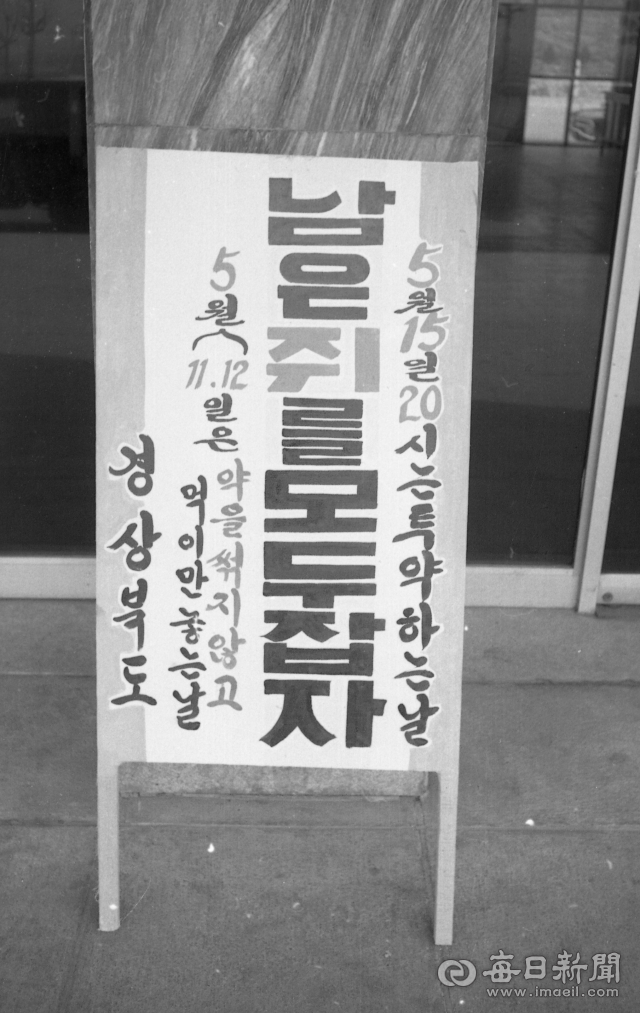 5월15일20시는투약하는날
남은쥐를모두잡자
5월11.12일은약을쒀지않고
먹이만놓는날
경상북도
每日新聞
www.imaeil.com